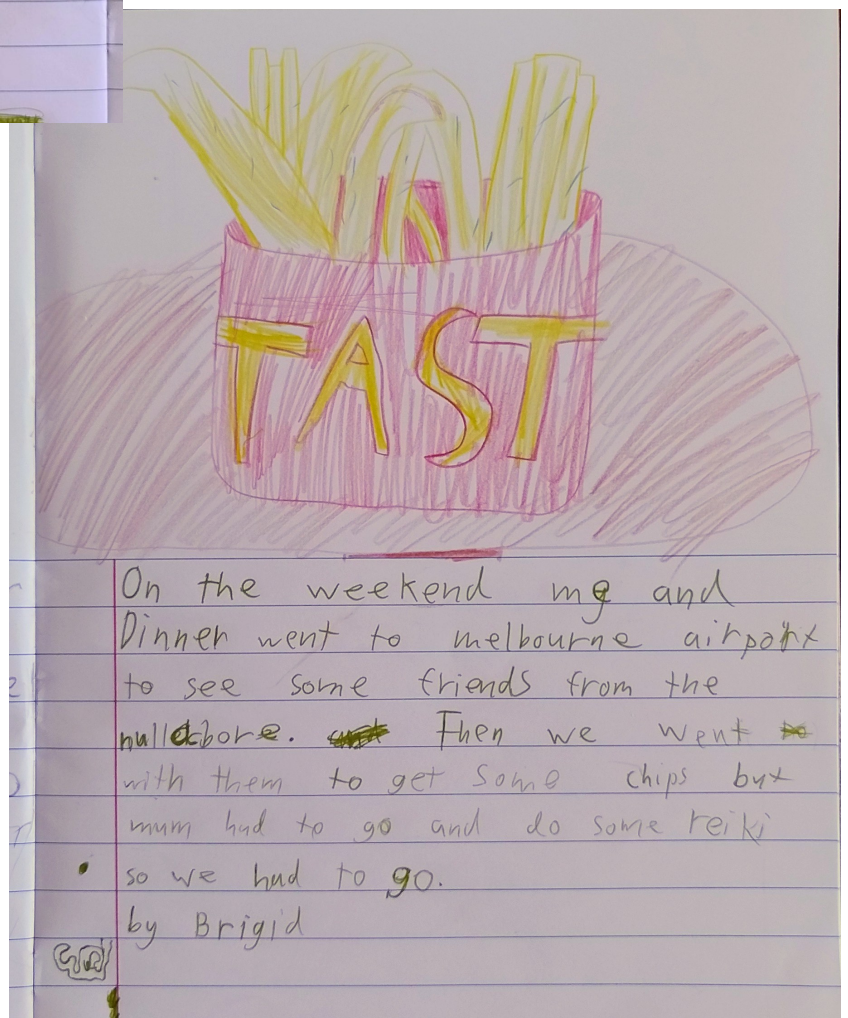 TAST
On the weekend me and
Dinner went to melbourne airport
to see some friends from the
nullabore. Then we went
with them to get some chips but
mum had to go and do some reiki
so we had to go.
by Brigid